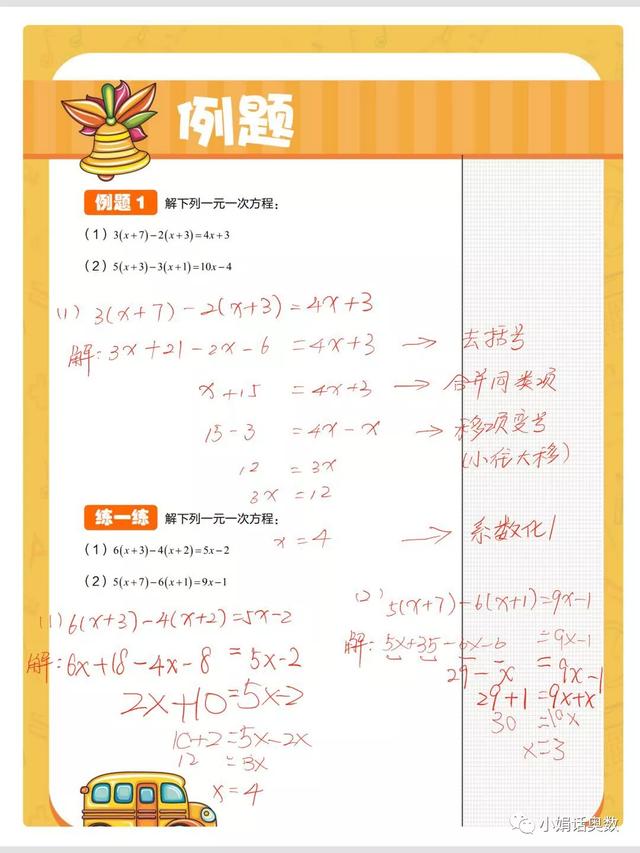 例题
例题 1 解下列一元一次方程:
(1) 3(x+7)-2(x+3)=4x+3
(2) 5(x+3)-3(x+1)=10x-4
(1) 3(x+7)-2(x+3)=4x+3
解: 3x+21-2x-6 =4x+3 → 去括号
x+15 =4x+3 → 合并同类项
15-3 =4x-x → 移项变号
(小往大移)
12 =3x
3x =12
x=4 → 系数化1
练一练 解下列一元一次方程:
(1) 6(x+3)-4(x+2)=5x-2
(2) 5(x+7)-6(x+1)=9x-1
(1) 6(x+3)-4(x+2)=5x-2
解: 6x+18-4x-8 =5x-2
2x+10=5x-2
10+2=5x-2x
12 =3x
x=4
(2) 5(x+7)-6(x+1)=9x-1
解: 5x+35-6x-6 =9x-1
29-x =9x-1
29+1 =9x+x
30 =10x
x=3
小娟话奥数